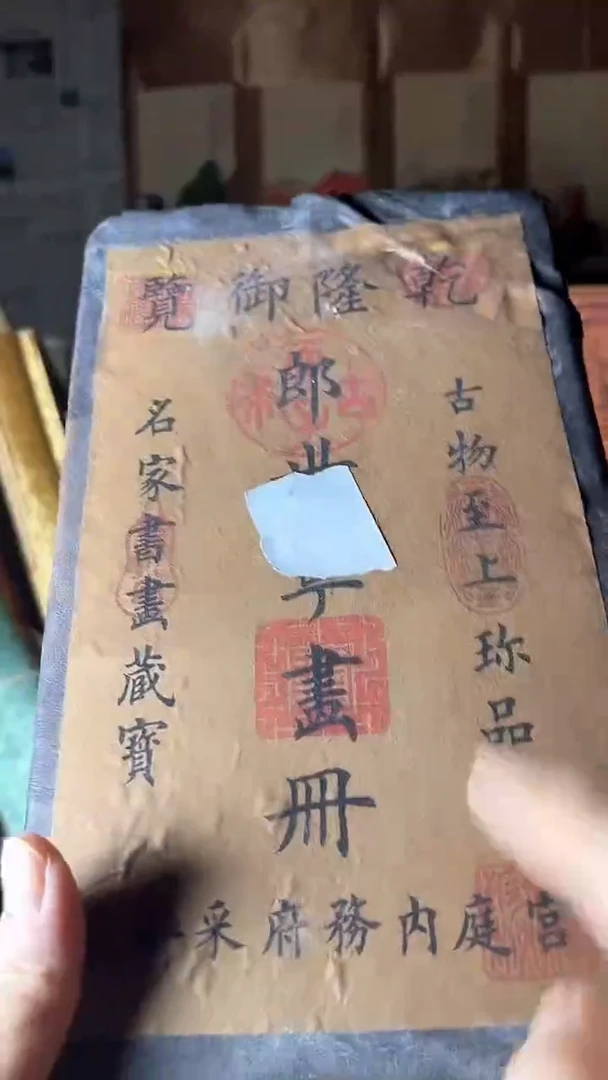 乾隆御覽
古物至上珎品
郎
畫冊
名家書畫藏寶
宮庭内務府采